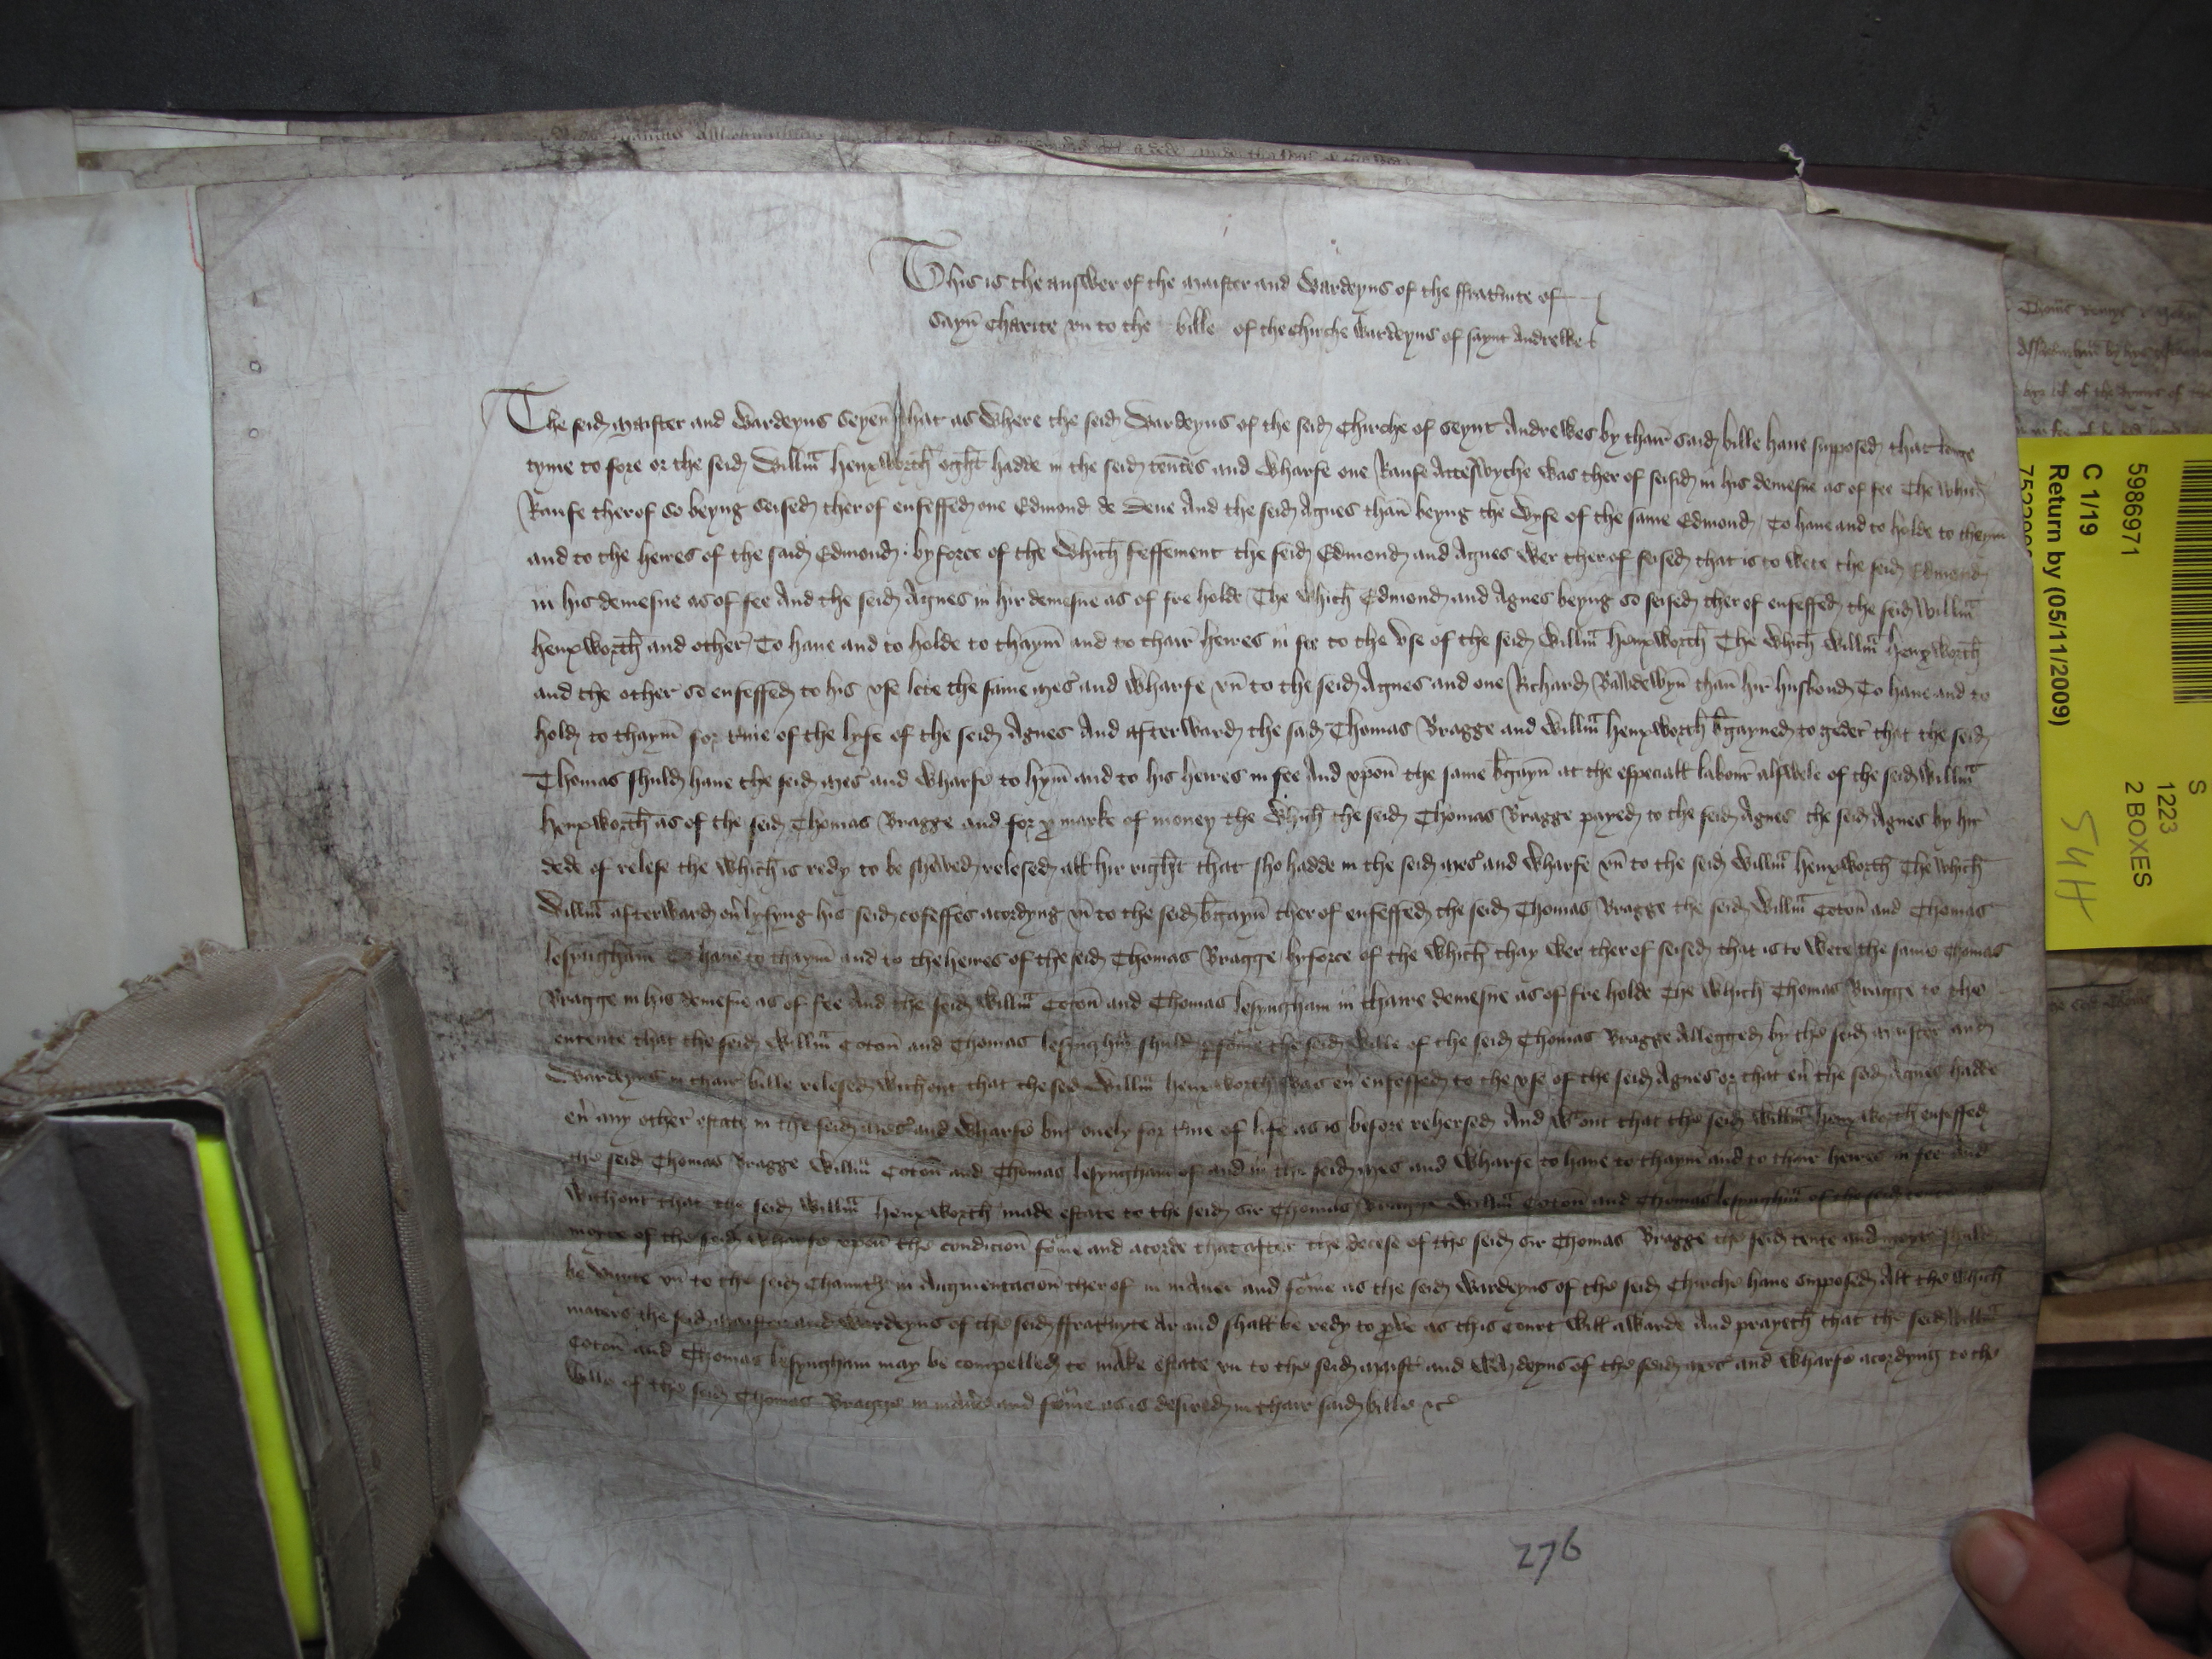 This is the answer of the maister and Wardeyns of the ffrat'nite of
Saynt Charite vn to the bille of the Chirche Wardeyns of saynt Andrewes
The seid maister and Wardeyns seyen that as Where the seid Wardeyns of the seid Chirche of seynt Andrewes by thair said bille haue supposed that longe
tyme to fore or the seid Willm̄ henxworth oght hadde in the seid tentes and Wharfe one Raufe Atteswyche Was ther of seisid in his demesne as of fee The Which
Raufe therof so beyng seised ther of enfeffed one Edmond de Dene And the seid Agnes than̄ beyng the Wyfe of the same Edmond To haue and to holde to theym
and to the heires of the said Edmond by force of the Which feffement the seid Edmond and Agnes Wer ther of seised that is to Wete the seid Edmond
in his demesne as of fee And the seid Agnes in hir demesne as of fre holde The Which Edmond and Agnes beyng so seised ther of enfeffed the seid Willm̄
henxworth and other To haue and to holde to thaym̄ and to thair heires in fee to the vse of the seid Willm̄ henxworth The Which Willm̄ henxworth
and the other so enfeffed to his vse lete the same mes' and Wharfe vn̄ to the seid Agnes and one Richard Bawdewyn̄ than̄ hir husbond To haue and to
hold to thaym̄ for t'me of the lyfe of the seid Agnes And afterward the said Thomas Bragge and Willm̄ henxworth b'gayned to geder that the seid
Thomas shuld haue the seid mes' and Wharfe to hym̄ and to his heires in fee And vpon̄ the same b'gayn̄ at the especiall labour alswele of the seid Willm̄
henxworth as of the seid Thomas Bragge and for x marke of money the Which the seid Thomas Bragge payed to the seid Agnes the seid Agnes by hir
dede of relese the Which is redy to be shewed relesed all hir right that sho hadde in the seid mes' and Wharfe vn̄ to the seid Willm̄ henxworth The Which
Willm̄ afterward ou'lyfyng his seid cofeffes acordyng vn̄ to the seid b'gayn̄ ther of enfeffed the seid Thomas Bragge the seid Willm̄ Coton̄ and Thomas
lesyngham To haue to thaym̄ and to the heires of the seid Thomas Bragge by force of the Which thay Wer ther of seised that is to Wete the same Thomas
Bragge in his demesne as of fee And the seid Willm̄ Coton̄ and Thomas lesyngham in thaire demesne as of fre holde The Which Thomas Bragge to the
entente that the seid Willm̄ Coton̄ and Thomas lesynghm̄ shuld p'fome the seid Wille of the seid Thomas Bragge Allegged by the seid maister and
Wardeyns in thair bille relesed Without that the seid Willm̄ henxworth Was eu' enfeffed to the vse of the seid Agnes or that eu' the seid Agnes hadde
eu' any other estate in the seid mes' and Wharfe but onely for t'me of life as is before rehersed And W'out that the seid Willm̄ henxworth enfeffed
the seid Thomas Bragge Willm̄ Coton̄ and Thomas lesyngham of and in the seid mes' and Wharfe to haue to thaym̄ and to thair heires in fee And
Without that the seid Willm̄ henxworth made estate to the seid Sir Thomas Bragge Willm̄ Coton̄ and Thomas lesynghm̄ of the seid
moyte of the seid Wharfe vpon̄ the condicion̄ fome and acorde that after the decese of the seid Sir Thomas Bragge the seid tente and moyte shuld
be vnyte vn̄ to the seid Chauntry in Augmentacion̄ ther of in maner and fome as the seid Wardeyns of the seid Chirche haue supposed All the Which
maters the seid maister and Wardeyns of the seid ffrat'nyte Ar and shall be redy to p've as this Court Will awarde And prayeth that the seid Willm̄
Coton̄ and Thomas lesyngham may be compelled to make estate vn to the seid maist' and Wardeyns of the seid mes' and Wharfe acordyng to the
Wille of the seid Thomas Bragge in man'e and fome as is desired in thair said bille &c
276
59869971
C 1/19
Return by (05/11/2009)
S
1223
2 BOXES